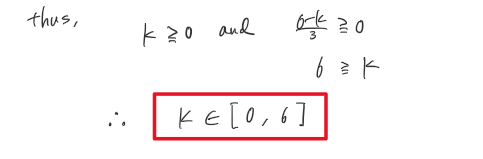 thus,
k ≧ 0 and 6-k/3 ≧ 0
6 ≧ k
∴ k ∈ [0, 6]